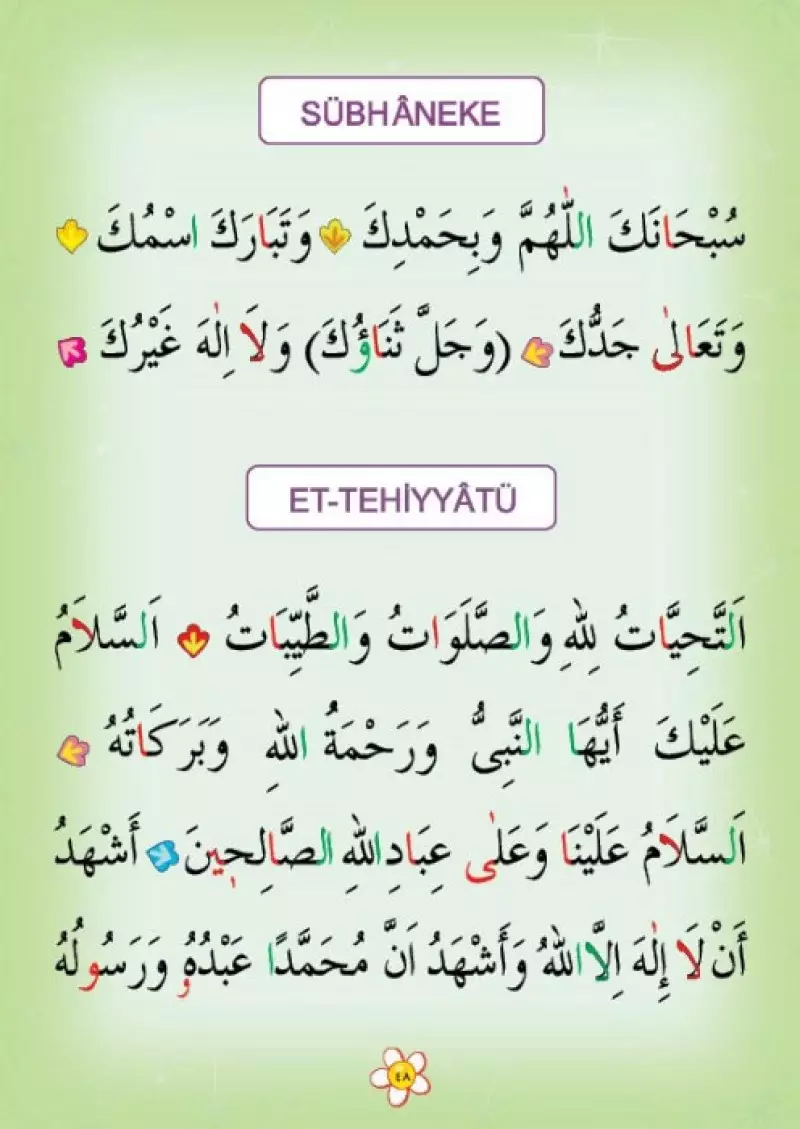 SÜBHÂNEKE
سُبْحَانَكَ اللّٰهُمَّ وَبِحَمْدِكَ وَتَبَارَكَ اسْمُكَ
وَتَعَالٰى جَدُّكَ (وَجَلَّ ثَنَاؤُكَ) وَلَا اِلٰهَ غَيْرُكَ
ET-TEHİYYÂTÜ
اَلتَّحِيَّاتُ لِلّٰهِ وَالصَّلَوَاتُ وَالطَّيِّبَاتُ اَلسَّلَامُ
عَلَيْكَ أَيُّهَا النَّبِىُّ وَرَحْمَةُ اللهِ وَبَرَكَاتُهُ
اَلسَّلَامُ عَلَيْنَا وَعَلٰى عِبَادِ اللهِ الصَّالِحٖينَ أَشْهَدُ
أَنْ لَا إِلٰهَ اِلَّا اللهُ وَأَشْهَدُ اَنَّ مُحَمَّدًا عَبْدُهُ وَرَسُولُهُ
٤٨